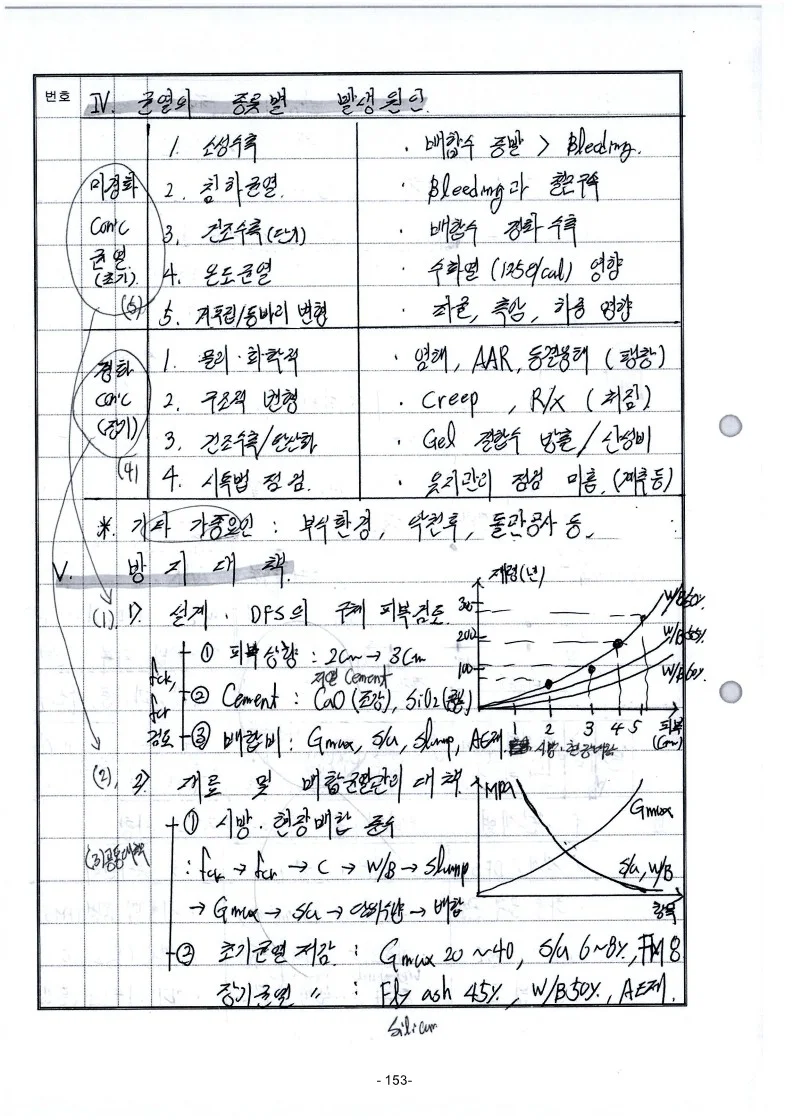 번호
IV. 균열의 종류별 발생원인
미경화 con'c 균열 (초기) (5)
1. 소성수축 · 배합수 증발 > Bleeding.
2. 침하균열. · Bleeding과 철근구속
3. 건조수축(단기) · 배합수 경화 수축
4. 온도균열 · 수화열 (125g/cal) 영향
5. 거푸집/동바리 변형 · 측압, 하중 영향
경화 con'c (장기) (4)
1. 물리·화학적 · 염해, AAR, 동결융해 (팽창)
2. 구조적 변형 · Creep, R/x (처짐)
3. 건조수축/탄산화 · Gel 결합수 방출 / 산성비
4. 시특법 점검. · 유지관리 점검 미흡. (재축 등)
※. 기타 가중요인 : 부식환경, 악천후, 돌관공사 등.
V. 방지대책
재령(년)
300
200
100
W/B50%.
W/B55%.
W/B60%.
1 2 3 4 5 피복 (cm)
(1). 1>. 설계 · DFS의 구체 피복검토.
fck, fcr 검토
① 피복상향 : 2cm → 3cm
저열 Cement
② Cement : CaO (조강), SiO2
③ 배합비 : Gmax, S/a, Slump, AE제.
(2). 2> 재료 및 배합균열관리 대책.
MPA
Gmax
S/a, W/B
항목
① 시방·현장배합 준수
(3) 공통대책
: fck → fcr → C → W/B → Slump
→ Gmax → S/a → 단위수량 → 배합
② 초기균열 저감 : Gmax 20~40, S/a 6~8%, FM 8
장기균열 〃 : Fly ash 45%, W/B50%, AE제.
Silicum
- 153-